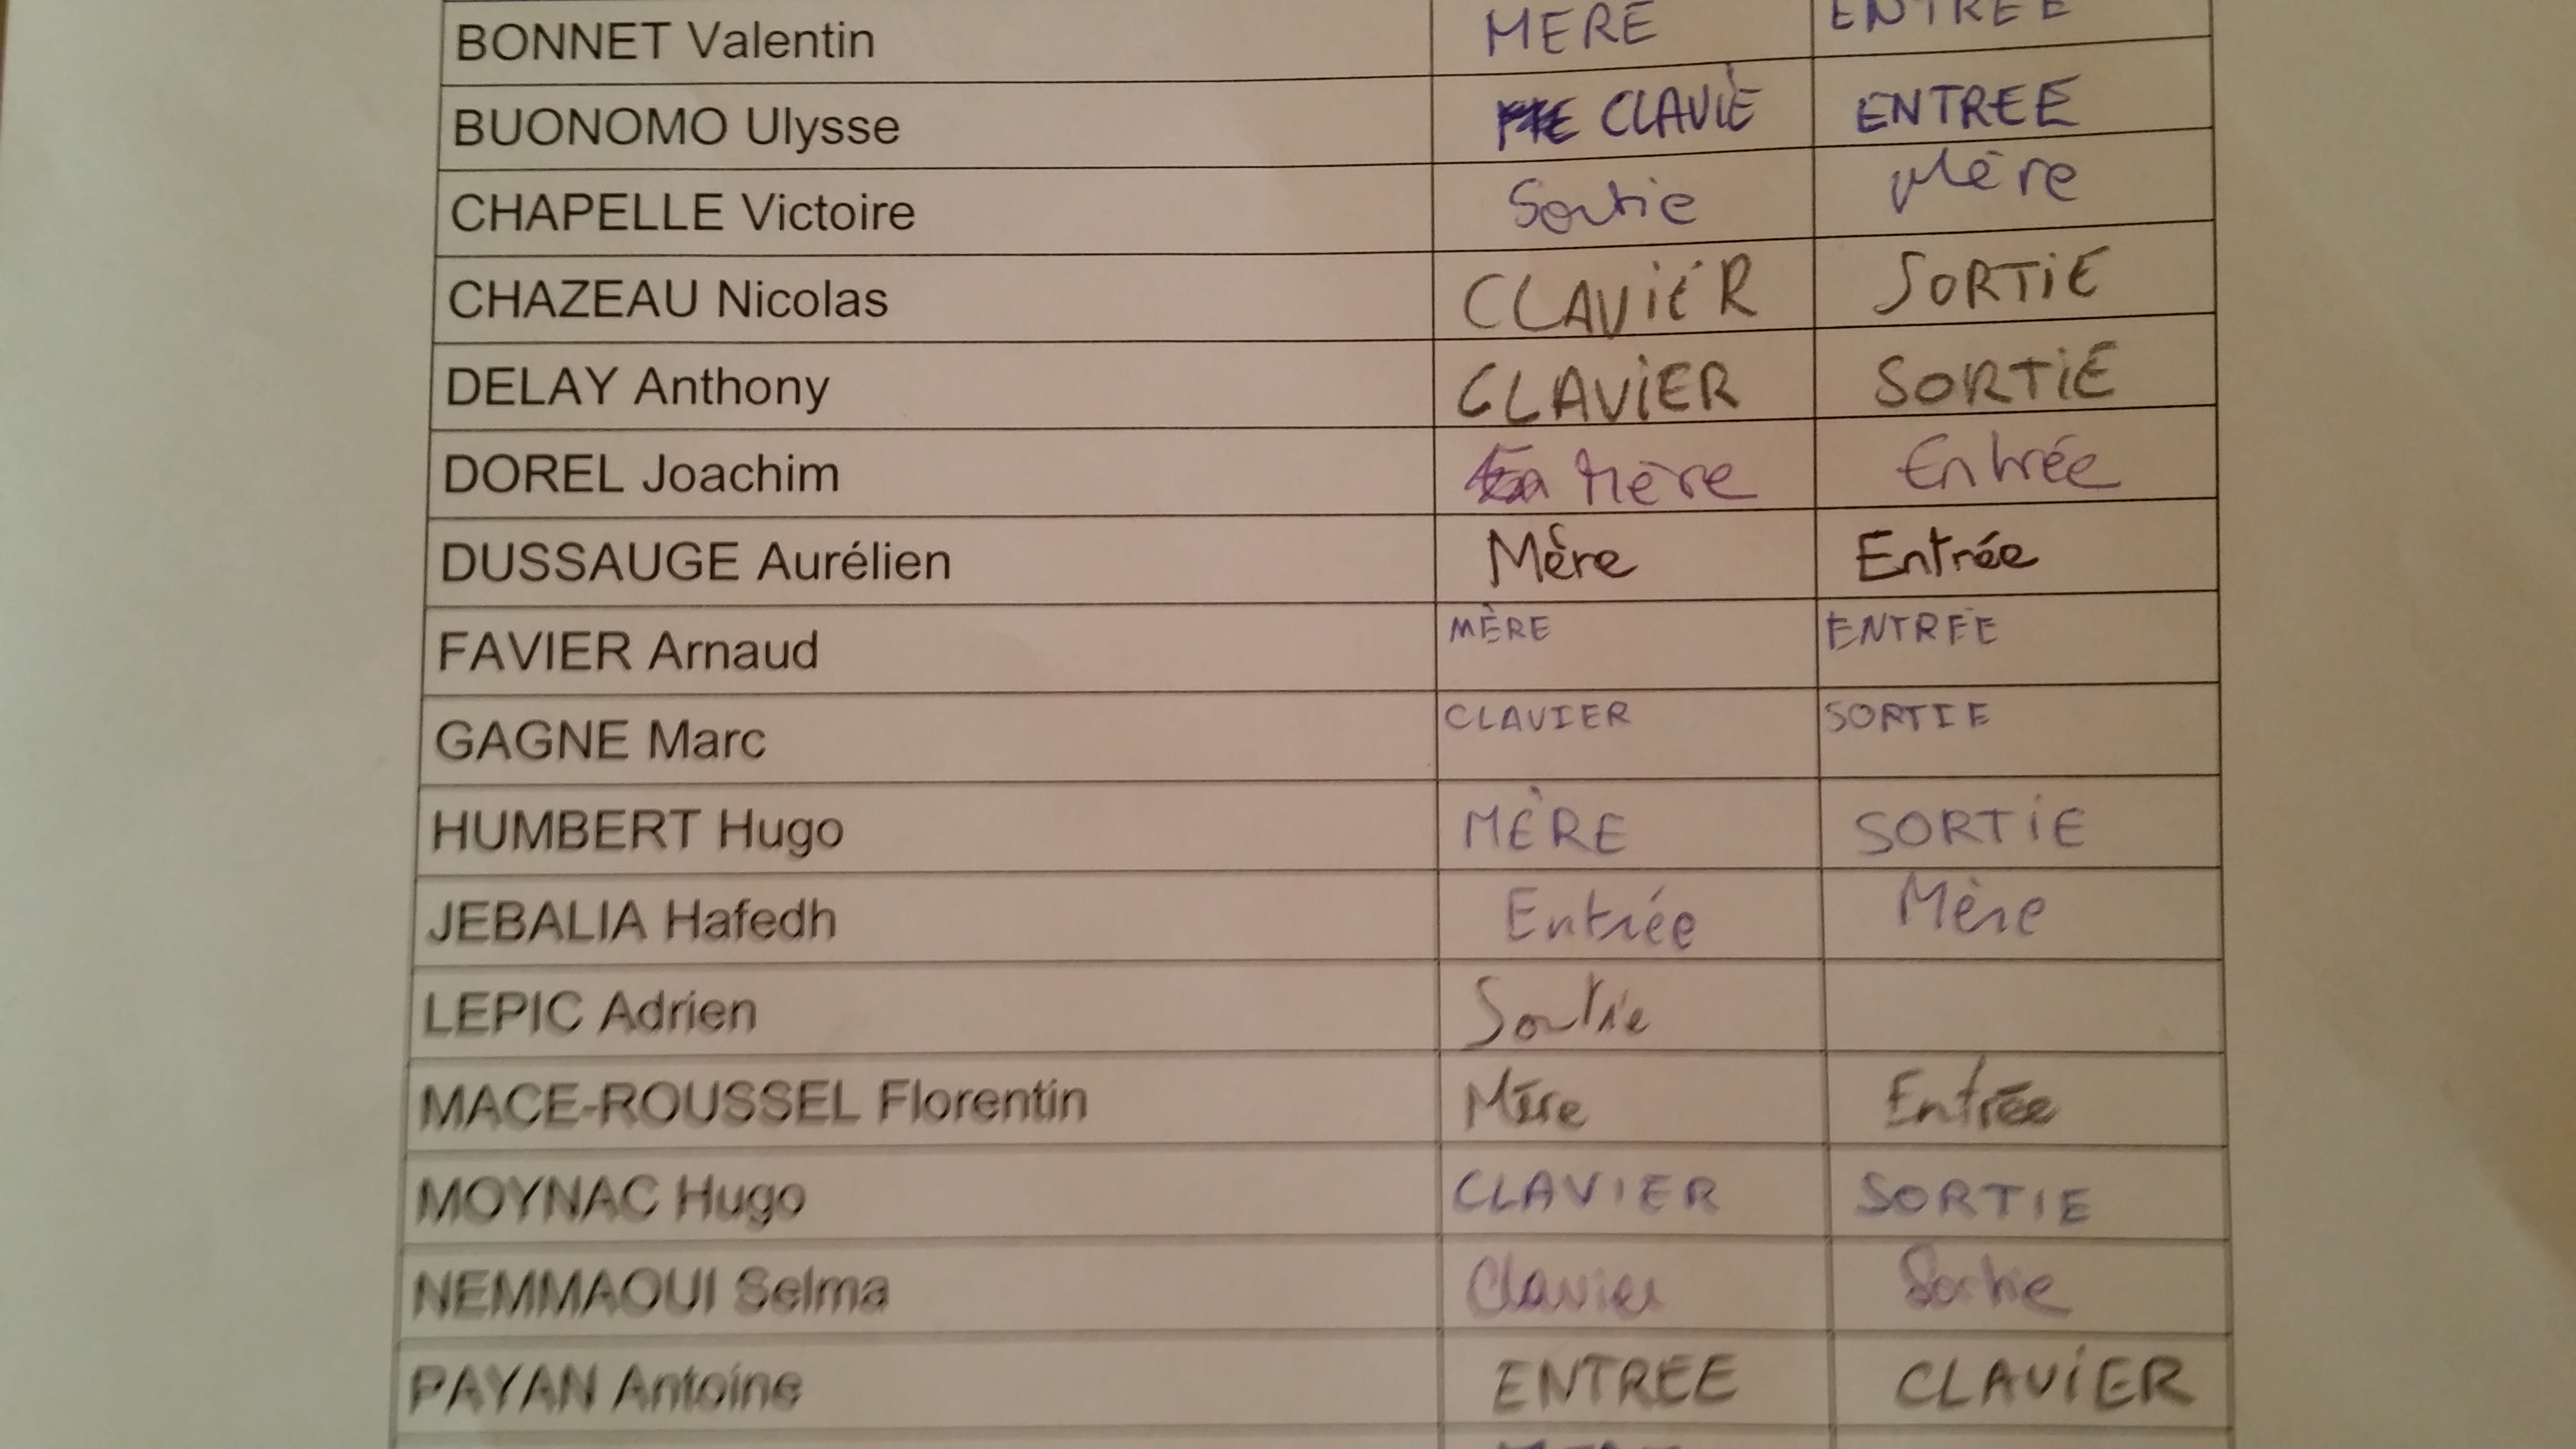 BONNET Valentin MERE ENTREE
BUONOMO Ulysse CLAVIE ENTREE
CHAPELLE Victoire Sortie Mère
CHAZEAU Nicolas CLAViER SORTiE
DELAY Anthony CLAViER SORTiE
DOREL Joachim Mère Entrée
DUSSAUGE Aurélien Mère Entrée
FAVIER Arnaud MÈRE ENTRÉE
GAGNE Marc CLAVIER SORTIE
HUMBERT Hugo MÈRE SORTiE
JEBALIA Hafedh Entrée Mère
LEPIC Adrien Sortie
MACE-ROUSSEL Florentin Mère Entrée
MOYNAC Hugo CLAVIER SORTIE
NEMMAOUI Selma Clavier Sortie
PAYAN Antoine ENTREE CLAViER